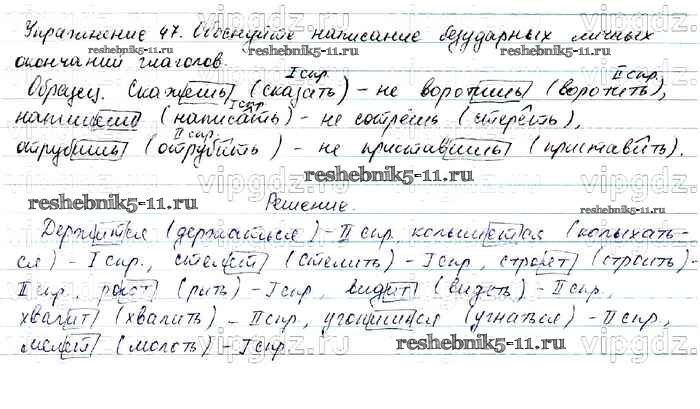 Упражнение 47. Обоснуйте написание безударных личных
окончаний глаголов.
I спр. II спр.
Образец. Скажешь (сказать) – не воротишь (воротить),
I спр.
напишешь (написать) – не сотрёшь (стереть),
II спр.
отрубишь (отрубить) – не приставишь (приставить).
Решение.
Держится (держаться) – II спр, колышется (колыхать-
ся) – I спр., стелет (стелить) – I спр, строет (строить) –
II спр, роет (рыть) – I спр, видит (видеть) – II спр.,
хвалит (хвалить) – II спр, угонишься (угнаться) – II спр,
мелет (молоть) – I спр
reshebnik5-11.ru
reshebnik5-11.ru
reshebnik5-11.ru
reshebnik5-11.ru
reshebnik5-11.ru
reshebnik5-11.ru
vipgdz.ru
vipgdz.ru
vipgdz.ru